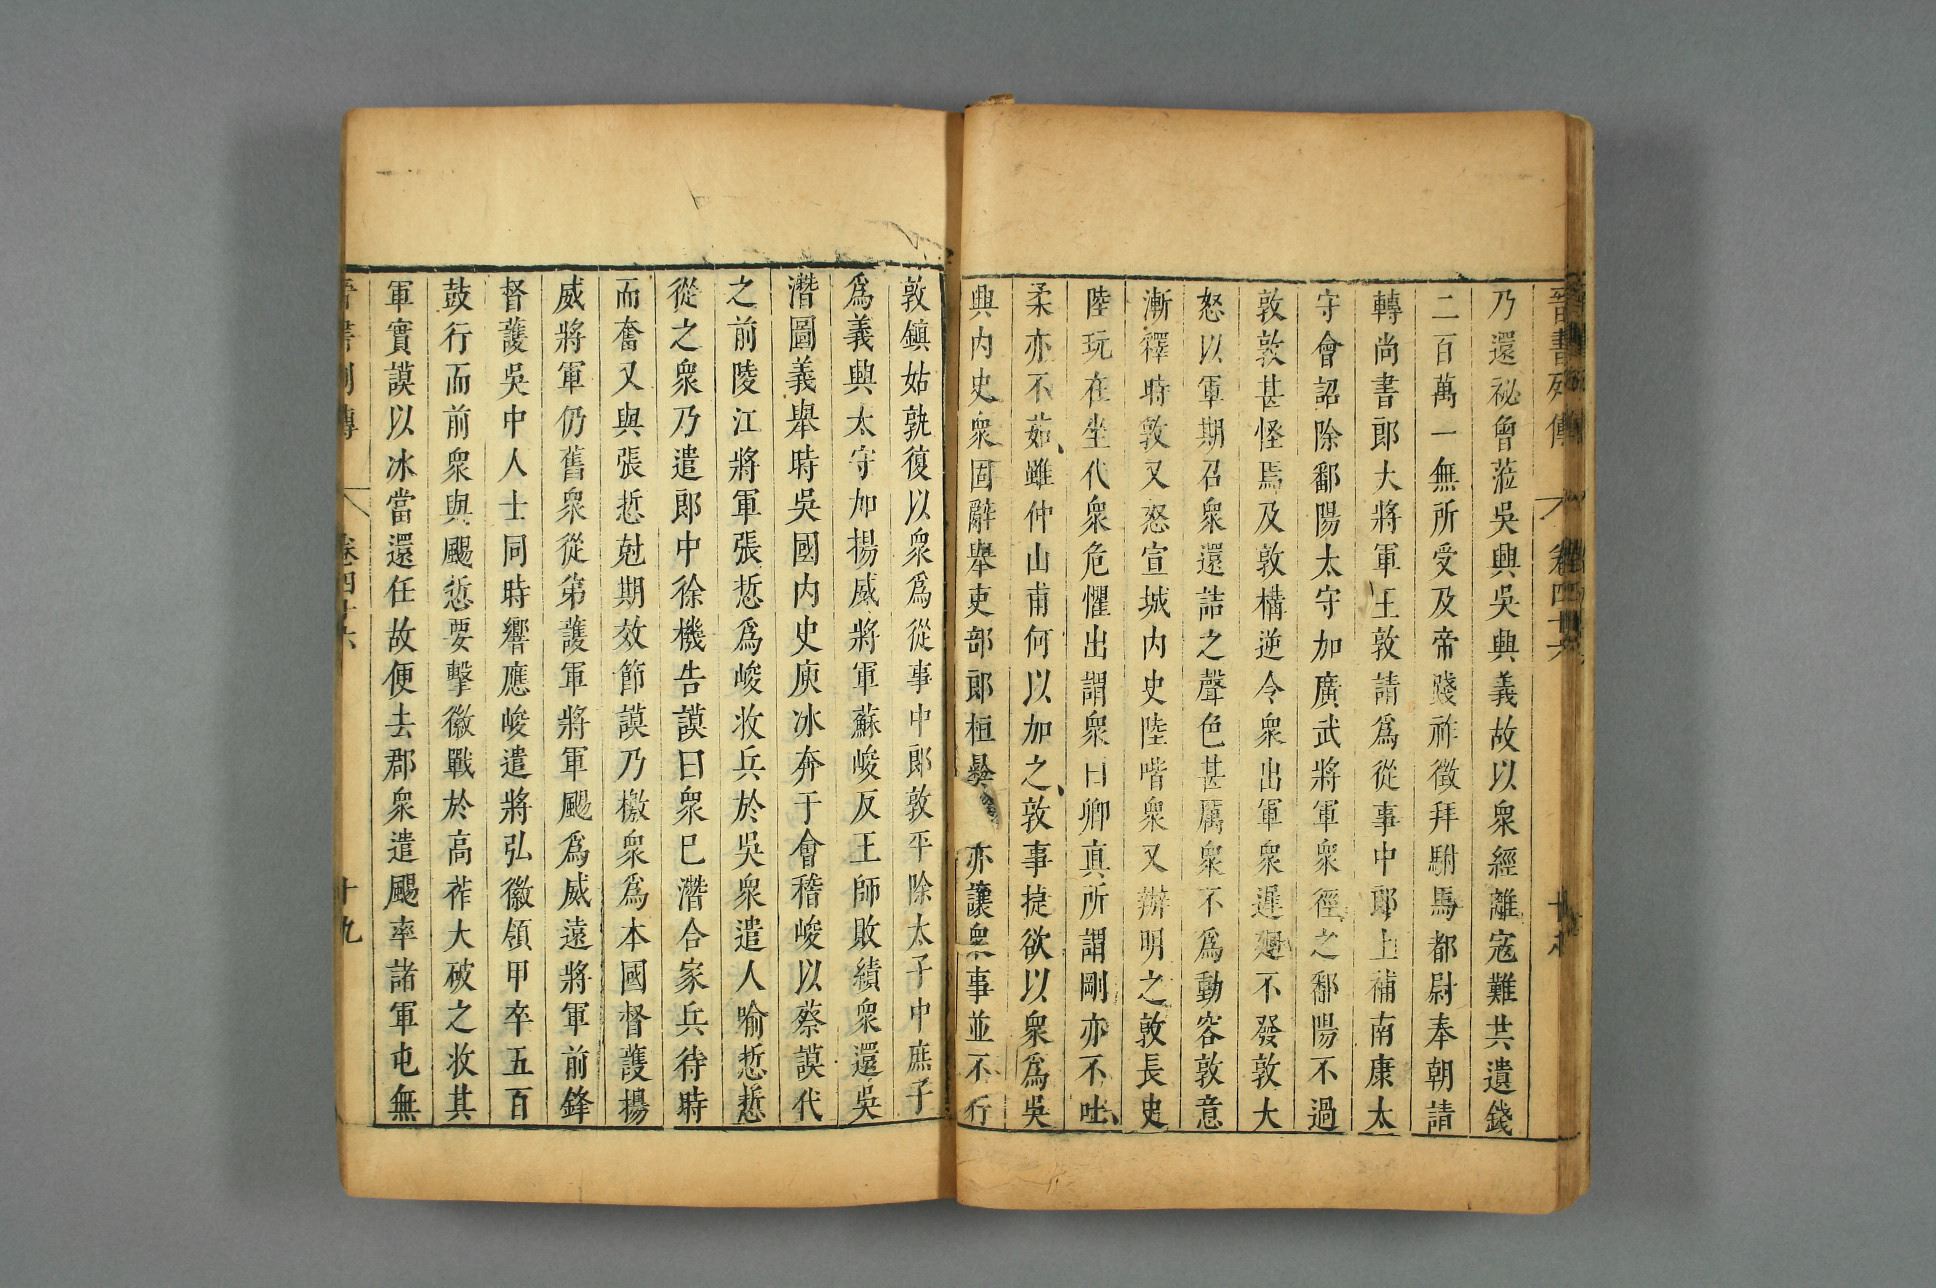 晉書列傳 卷四十六
乃還祕會蒞吳興吳興義故以衆經離寇難共遺錢
二百萬一無所受及帝踐祚徵拜駙馬都尉奉朝請
轉尚書郎大將軍王敦請爲從事中郎上補南康太
守會詔除鄱陽太守加廣武將軍衆徑之鄱陽不過
敦敦甚怪焉及敦構逆令衆出軍衆遲𢌞不發敦大
怒以軍期召衆還詰之聲色甚厲衆不爲動容敦意
漸釋時敦又怒宣城內史陸喈衆又辦明之敦長史
陸玩在坐代衆危懼出謂衆曰卿真所謂剛亦不吐
柔亦不茹雖仲山甫何以加之敦事捷欲以衆爲吳
興內史衆固辭舉吏部郎桓彝亦讓衆事並不行
敦鎮姑孰復以衆爲從事中郎敦平除太子中庶子
爲義興太守加揚威將軍蘇峻反王師敗績衆還吳
潛圖義舉時吳國內史庾冰奔于會稽峻以蔡謨代
之前陵江將軍張悊爲峻收兵於吳衆遣人喻悊悊
從之衆乃遣郎中徐機告謨曰衆已潛合家兵待時
而奮又與張悊尅期效節謨乃檄衆爲本國督護揚
威將軍仍舊衆從弟護軍將軍颺爲威遠將軍前鋒
督護吳中人士同時響應峻遣將弘徽領甲卒五百
鼓行而前衆與颺悊要擊徽戰於高祚大破之收其
軍實謨以冰當還任故便去郡衆遣颺率諸軍屯無
晉書列傳 卷四十六 十九